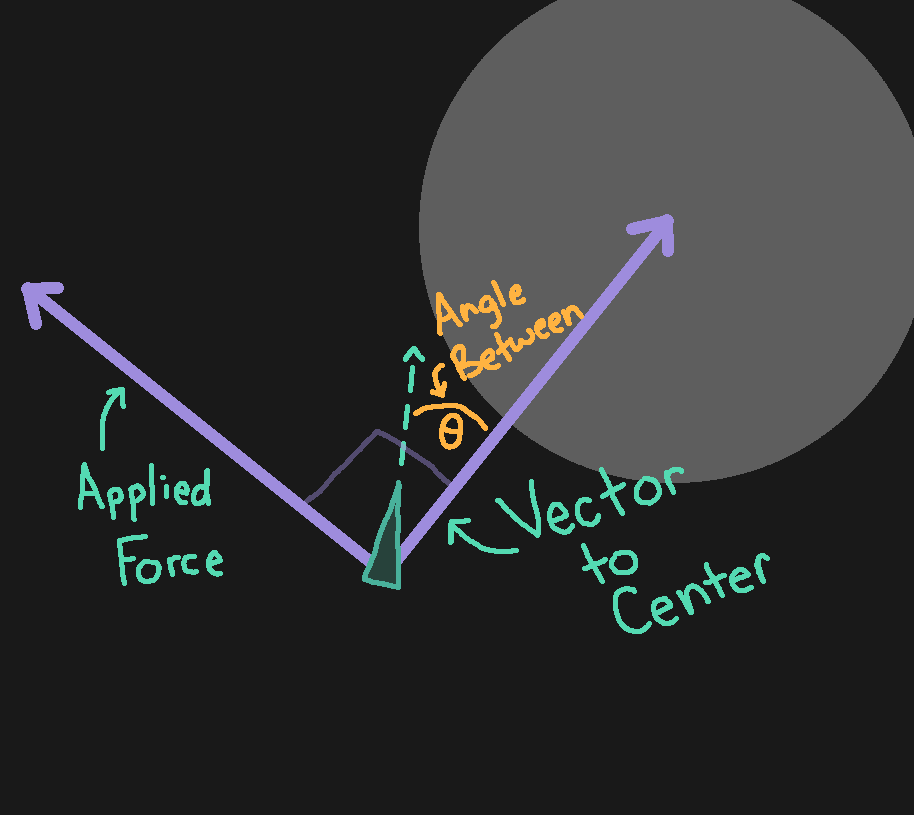 Angle
Between
θ
Applied
Force
Vector
to
Center